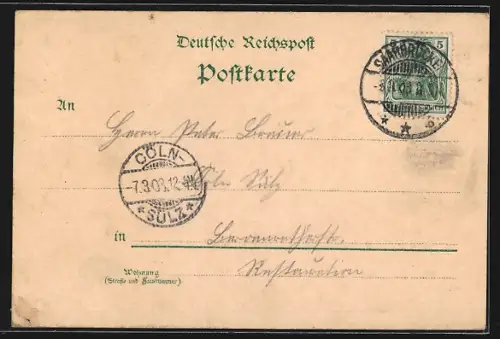 Deutsche Reichspost
Postkarte
5
SAARBRÜCKEN
An
Herrn Peter Brauer
CÖLN-
Cöln Sülz
-7.3.03.12-
* SÜLZ *
in
Restauration
Wohnung
(Straße und Hausnummer)